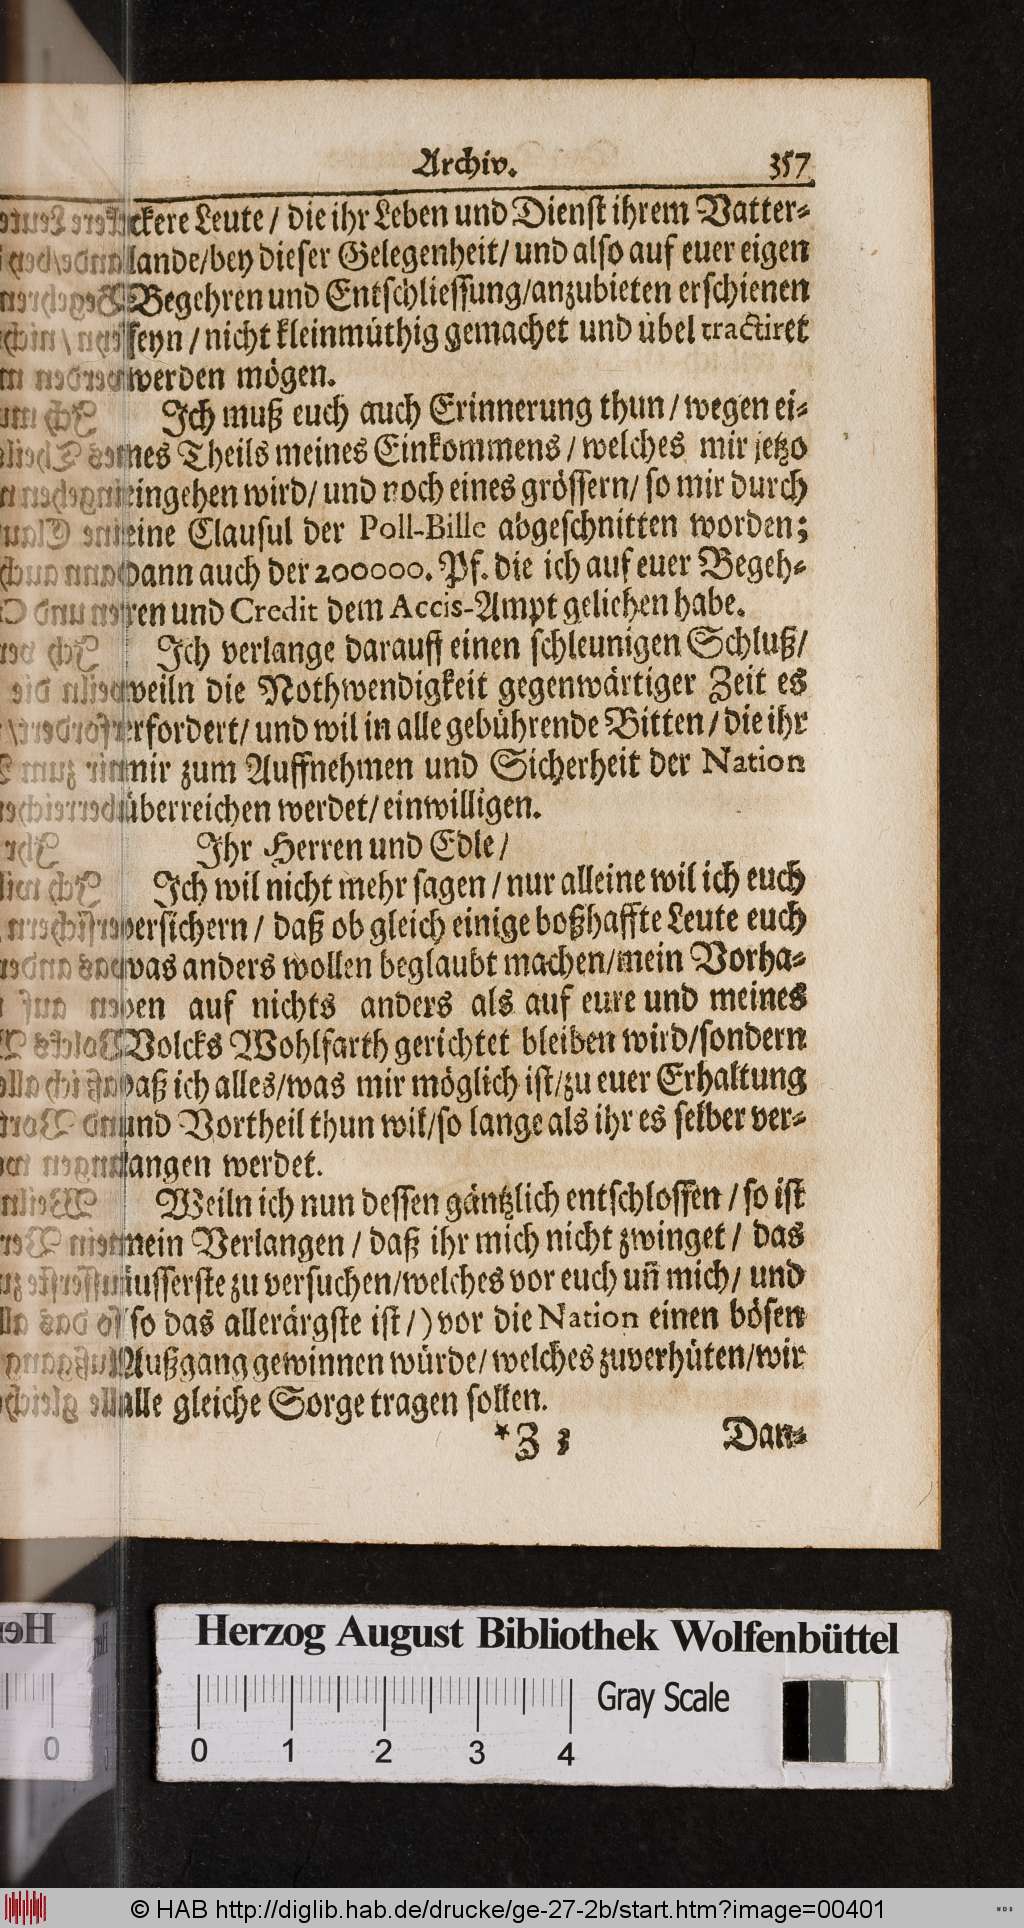 Archiv. 357
ckere Leute / die ihr Leben und Dienst ihrem Vatter-
lande/bey dieser Gelegenheit/ und also auf euer eigen
Begehren und Entschliessung/anzubieten erschienen
seyn / nicht kleinmüthig gemachet und übel tractiret
werden mögen.
Ich muß euch auch Erinnerung thun / wegen ei-
nes Theils meines Einkommens / welches mir jetzo
eingehen wird/ und noch eines grössern/ so mir durch
eine Clausul der Poll-Bille abgeschnitten worden;
dann auch der 200000. Pf. die ich auf euer Begeh-
ren und Credit dem Accis-Ampt geliehen habe.
Ich verlange darauff einen schleunigen Schluß/
weiln die Nothwendigkeit gegenwärtiger Zeit es
erfordert/ und wil in alle gebührende Bitten / die ihr
mir zum Auffnehmen und Sicherheit der Nation
überreichen werdet/ einwilligen.
Ihr Herren und Edle /
Ich wil nicht mehr sagen / nur alleine wil ich euch
versichern / daß ob gleich einige boßhaffte Leute euch
was anders wollen beglaubt machen/mein Vorha-
ben auf nichts anders als auf eure und meines
Volcks Wohlfarth gerichtet bleiben wird/sondern
daß ich alles/was mir möglich ist/zu euer Erhaltung
und Vortheil thun wil/so lange als ihr es selber ver-
langen werdet.
Weiln ich nun dessen gäntzlich entschlossen / so ist
mein Verlangen / daß ihr mich nicht zwinget / das
äusserste zu versuchen/welches vor euch un̄ mich/ und
(so das allerärgste ist/) vor die Nation einen bösen
Außgang gewinnen würde/ welches zuverhüten/wir
alle gleiche Sorge tragen sollen.
*Z 3 Dan-
Herzog August Bibliothek Wolfenbüttel
Gray Scale
0 1 2 3 4
© HAB http://diglib.hab.de/drucke/ge-27-2b/start.htm?image=00401